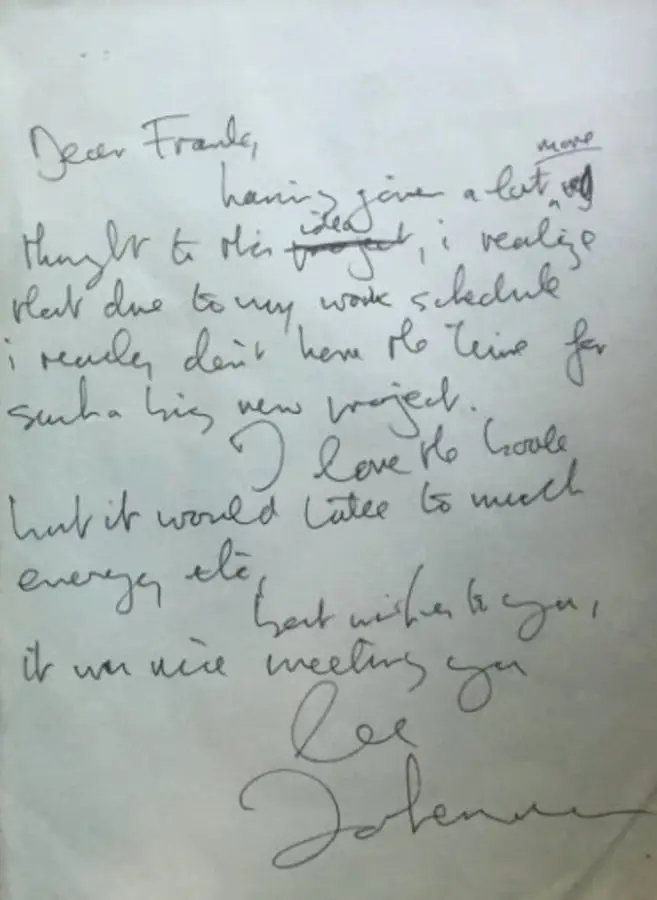 Dear Frank,
having given a lot more
thought to this idea, i realize
that due to my work schedule
i really don't have the time for
such a big new project.
I love the book
but it would take to much
energy etc,
best wishes to you,
it was nice meeting you